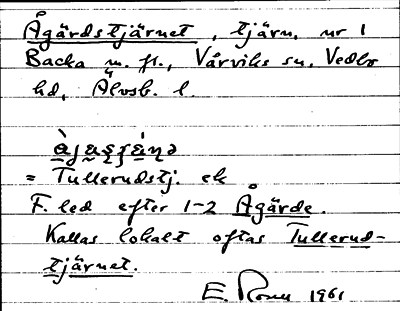 Ågärdstjärnet, tjärn, nr 1
Backa m. fl., Vårviks sn. Vedbo
hd, Älvsb. l.
= Tullerudstj. ek
F. led efter 1-2 Ågärde.
Kallas lokalt oftas Tullerud-
tjärnet.
E. 1961